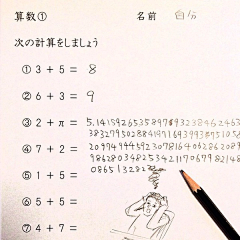 算数① 名前 自分
次の計算をしましょう
① 3 + 5 = 8
② 6 + 3 = 9
③ 2 + π = 5.14159265358979323846264
383279502884197169399375105
2097494459230781640628620899
986280348253421170679821480
0865132823
④ 7 + 2 =
⑤ 1 + 5 =
⑥ 5 + 5 =
⑦ 4 + 7 =